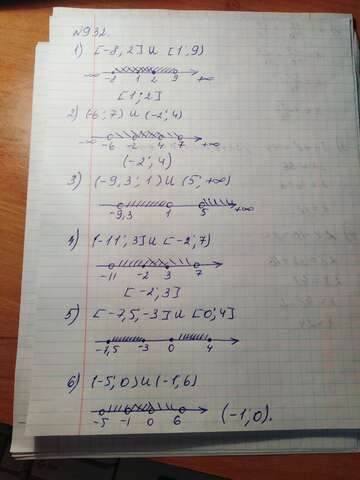 №932.
1) [-8, 2] и [1; 9)
-∞ -8 1 2 9 +∞
[1; 2]
2) (-6; 7) и (-2; 4)
-∞ -6 -2 4 7 +∞
(-2; 4)
3) (-9,3; 1) и (5; +∞)
-9,3 1 5 +∞
4) (-11; 3] и [-2; 7)
-11 -2 3 7
[-2; 3]
5) [-7,5, -3] и [0; 4]
-7,5 -3 0 4
6) (-5; 0) и (-1, 6)
-5 -1 0 6 (-1; 0).